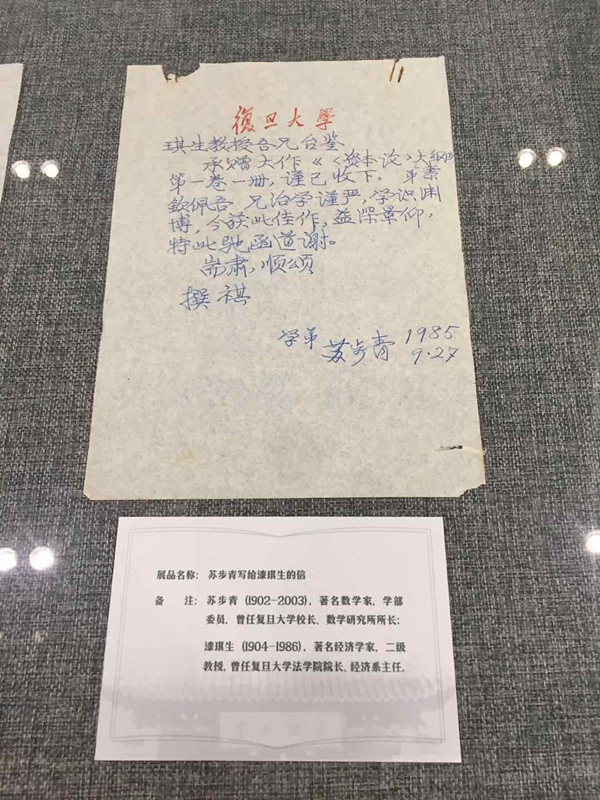 復旦大學
琪生教授吾兄台鉴
承赠大作《〈资本论〉大纲》
第一卷一册，谨已收下。弟素
钦佩吾兄治学谨严，学识渊
博，今获此佳作，益深景仰，
特此驰函道谢。
耑肃，顺颂
撰祺
学弟 苏步青 1985
9.27
展品名称： 苏步青写给漆琪生的信
备 注： 苏步青（1902-2003），著名数学家，学部
委员，曾任复旦大学校长、数学研究所所长；
漆琪生（1904-1986），著名经济学家，二级
教授，曾任复旦大学法学院院长、经济系主任。